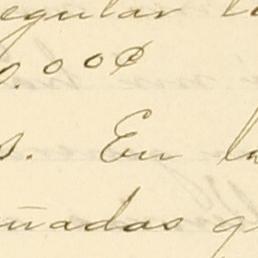 egular l
0.00¢
s. En la
uñadas q